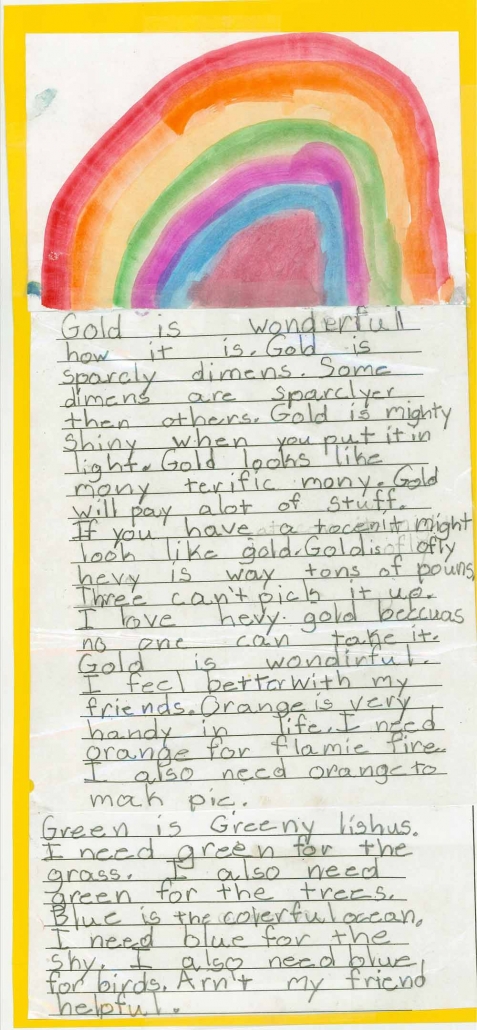 Gold is wonderfull
how it is. Gold is
sparcly dimens. Some
dimens are sparclyer
then others. Gold is mighty
shiny when you put it in
light. Gold looks like
mony terific mony. Gold
will pay alot of stuff.
If you have a it might
look like gold. Gold is ofly
hevy is way tons of pouns
Three can't pick it up.
I love hevy gold beccuas
no one can take it.
Gold is wondirful.
I feel better with my
friends. Orange is very
handy in life. I need
orange for flamie fire.
I also need orange to
mak pic.
Green is Greeny lishus.
I need green for the
grass. I also need
green for the trees.
Blue is the colerful ocean.
I need blue for the
sky. I also need blue
for birds. Arn't my friend
helpful.